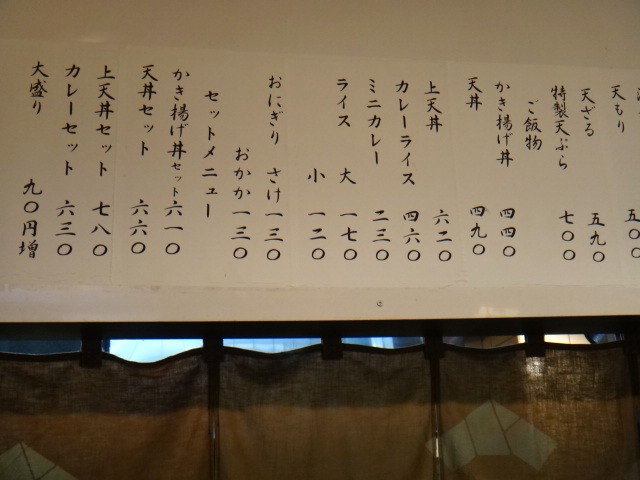 天もり 五〇〇
天ざる 五九〇
特製天ぷら 七〇〇
ご飯物
かき揚げ丼 四四〇
天丼 四九〇
上天丼 六二〇
カレーライス 四六〇
ミニカレー 二三〇
ライス 大 一七〇
小 一二〇
おにぎり さけ 一三〇
おかか 一三〇
セットメニュー
かき揚げ丼セット 六一〇
天丼セット 六六〇
上天丼セット 七八〇
カレーセット 六三〇
大盛り 九〇円増